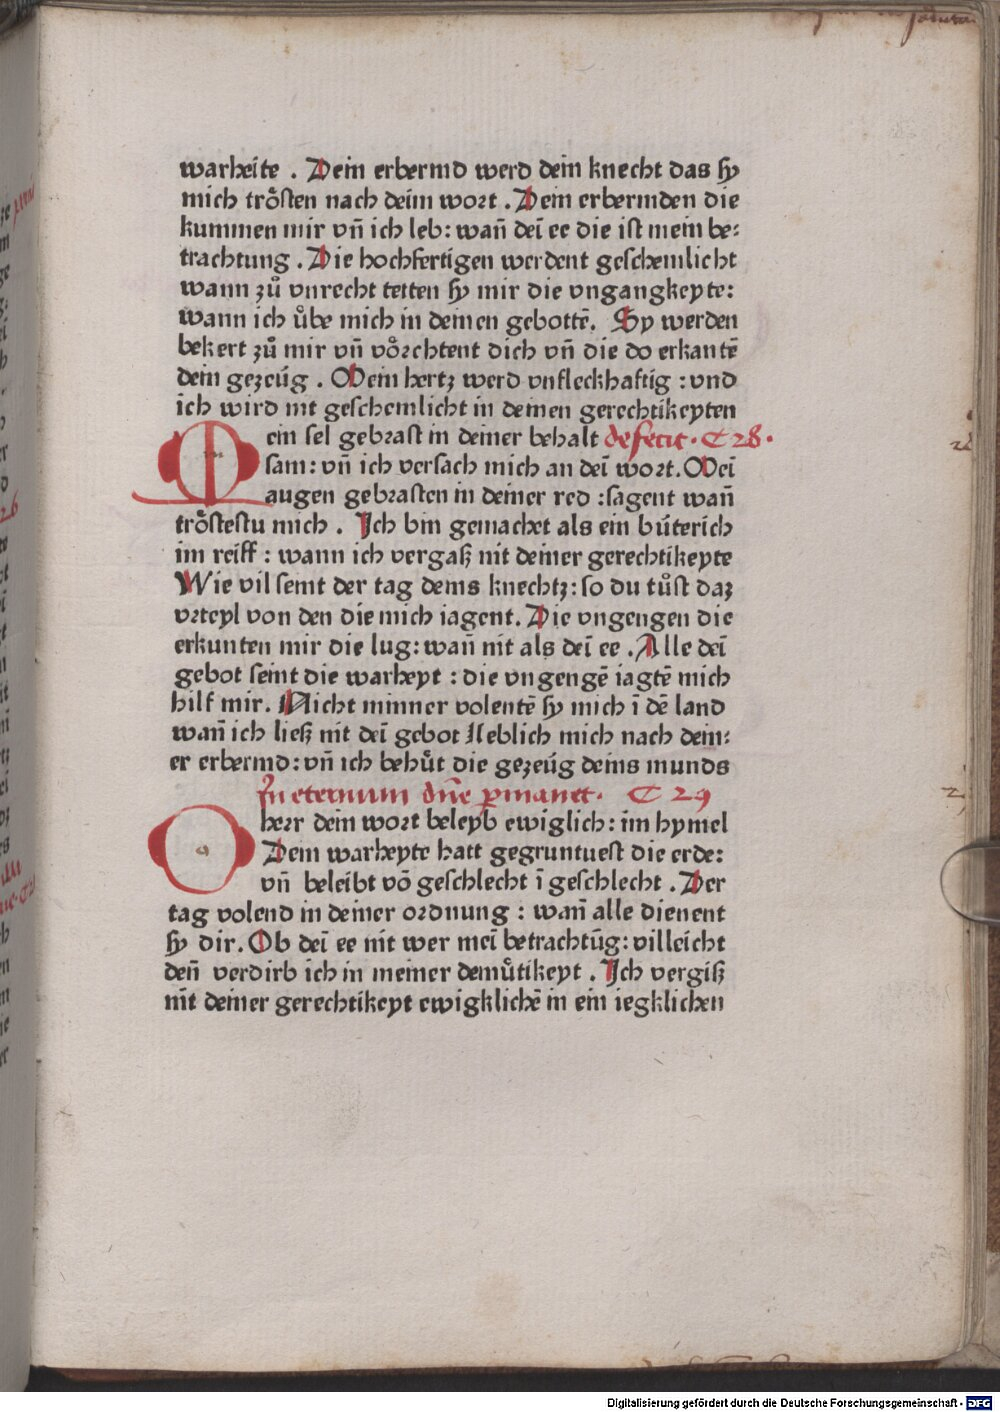 warheite . Dein erbermd werd dein knecht das sy
mich trösten nach deim wort . Dein erbermden die
kummen mir vñ ich leb: wañ deī ee die ist mein be:
trachtung . Die hochfertigen werdent geschemlicht
wann zů vnrecht tetten sy mir die vngangkeyte:
wann ich ůbe mich in deinen gebottē. Sy werden
bekert zů mir vñ vöꝛchtent dich vñ die do erkantē
dein gezeüg . Mein hertz werd vnfleckhaftig : vnd
ich wird nit geschemlicht in deinen gerechtikeyten
Mein sel gebꝛast in deiner behalt defecit . C 28 .
sam: vñ ich versach mich an deī woꝛt. Meī
augen gebꝛasten in deiner red :sagent wañ
tröstestu mich . Ich bin gemachet als ein büterich
im reiff : wann ich vergaß nit deiner gerechtikeyte
Wie vil seint der tag deins knechtz: so du tůst daz
vꝛteyl von den die mich iagent. Die vngengen die
erkunten mir die lug: wañ nit als deī ee . Alle deī
gebot seint die warheyt : die vngengē iagtē mich
hilf mir. Nicht minner volentē sy mich ī dē land
wañ ich ließ nit deī gebot Leblich mich nach dein:
er erbermd: vñ ich behüt die gezeüg deins munds
In eternum dñe ꝑmanet . C 29
O herꝛ dein woꝛt beleyb ewiglich: im hymel
Dein warheyte hatt gegruntuest die erde:
vñ beleibt vō geschlecht ī geschlecht . Der
tag volend in deiner oꝛdnung : wañ alle dienent
sy dir. Ob deī ee nit wer meī betrachtūg: villeicht
deñ verdirb ich in meiner demütikeyt . Ich vergiß
nit deiner gerechtikeyt ewigklichē in ein iegklichen
Digitalisierung gefördert durch die Deutsche Forschungsgemeinschaft - DFG